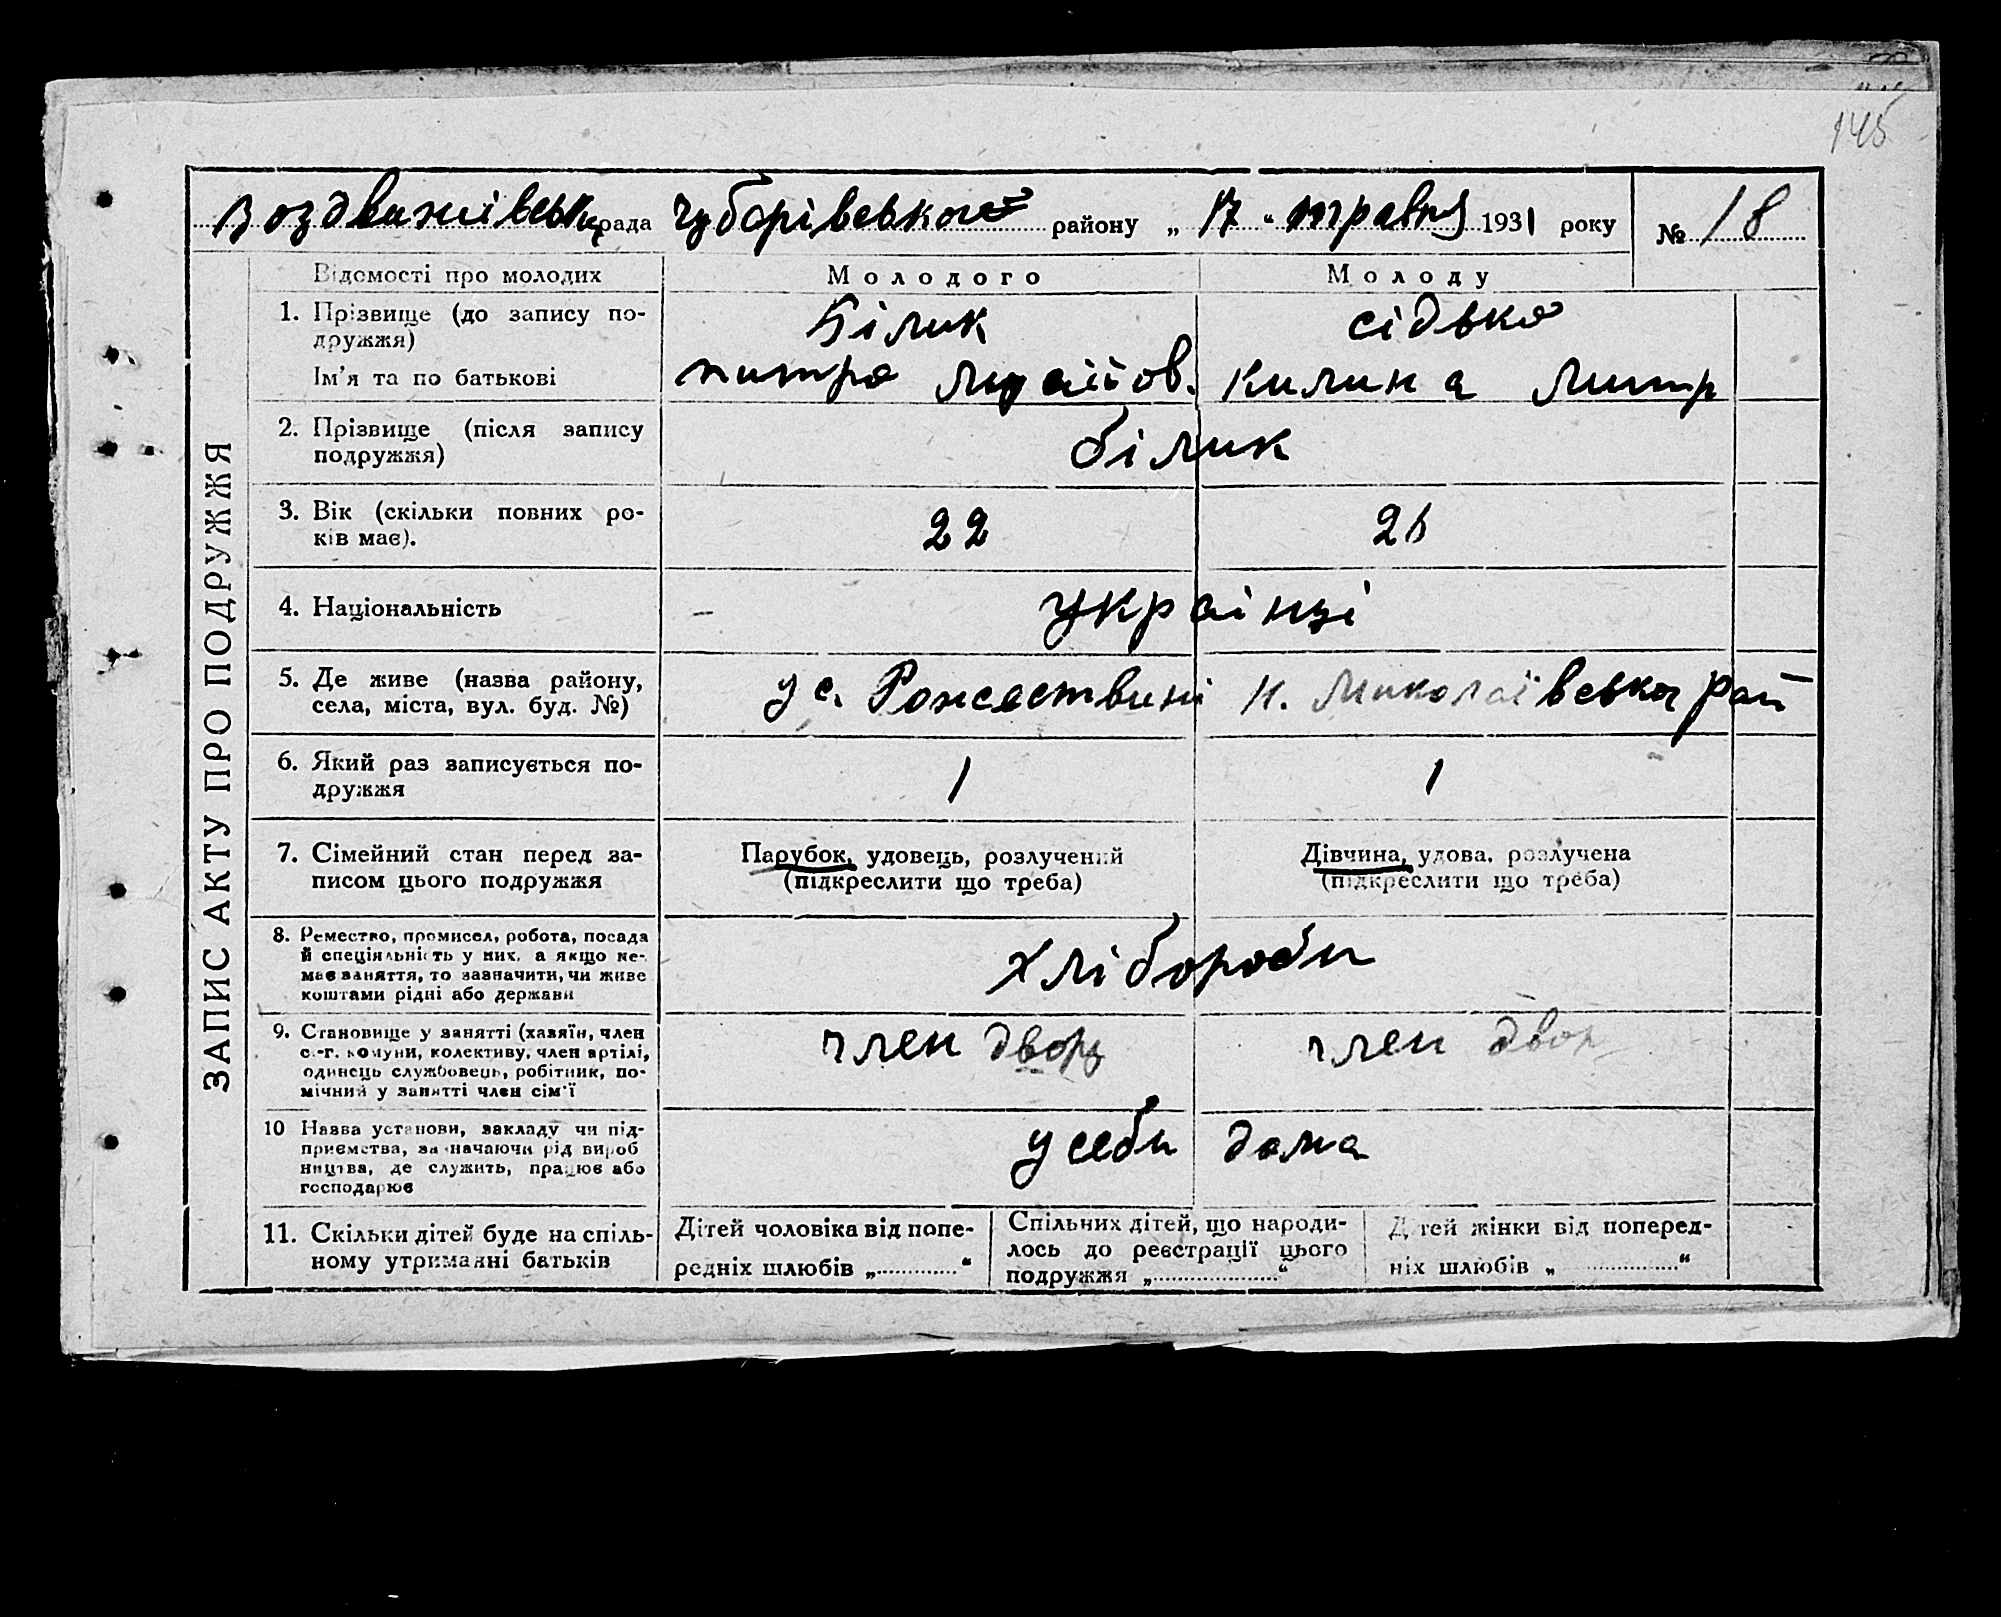 145
Воздвижівська рада Чубарівського району „ 17 “ травня 1931 року № 18
ЗАПИС АКТУ ПРО ПОДРУЖЖЯ
Відомості про молодих
Молодого
Молоду
1. Прізвище (до запису по-
дружжя)
Ім'я та по батькові
Білик
Сідько
Килина Митр
2. Прізвище (після запису
подружжя)
білик
3. Вік (скільки повних ро-
ків має).
22
21
4. Національність
українці
5. Де живе (назва району,
села, міста, вул. буд. №)
у с. Рожествині Н. Миколаївська рай
6. Який раз записується по-
дружжя
1
1
7. Сімейний стан перед за-
писом цього подружжя
Парубок, удовець, розлучений
(підкреслити що треба)
Дівчина, удова, розлучена
(підкреслити що треба)
8. Ремество, промисел, робота, посада
й спеціяльність у них, а якщо не-
має заняття, то зазначити, чи живе
коштами рідні або держави
хлібороби
9. Становище у занятті (хазяїн, член
с.-г. комуни, колективу, член артілі,
одинець службовець, робітник, по-
мічний у занятті член сім'ї
член двору
член двор
10 Назва установи, закладу чи під-
приємства, зазначаючи рід вироб
ництва, де служить, працює або
господарює
у себи дома
11. Скільки дітей буде на спіль-
ному утриманні батьків
Дітей чоловіка від попе-
редніх шлюбів „ “
Спільних дітей, що народи-
лось до реєстрації цього
подружжя „ “
Дітей жінки від поперед-
ніх шлюбів „ “